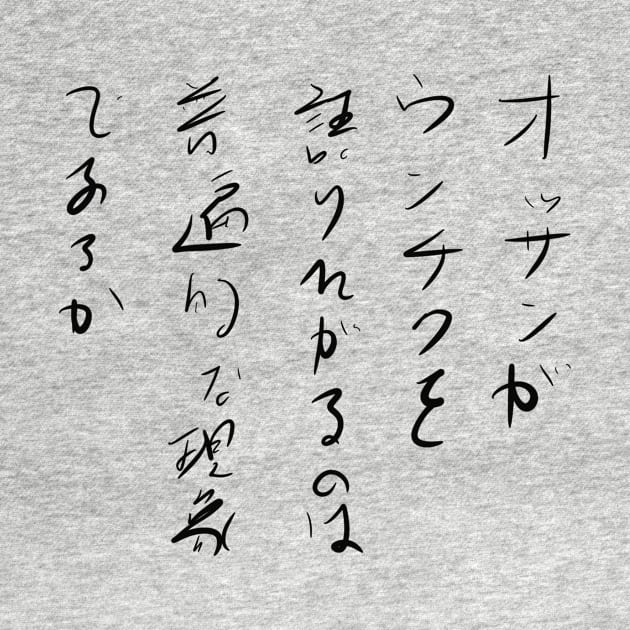 オッサンが
ウンチクを
語りれがるのは
普遍的な現象
であるか